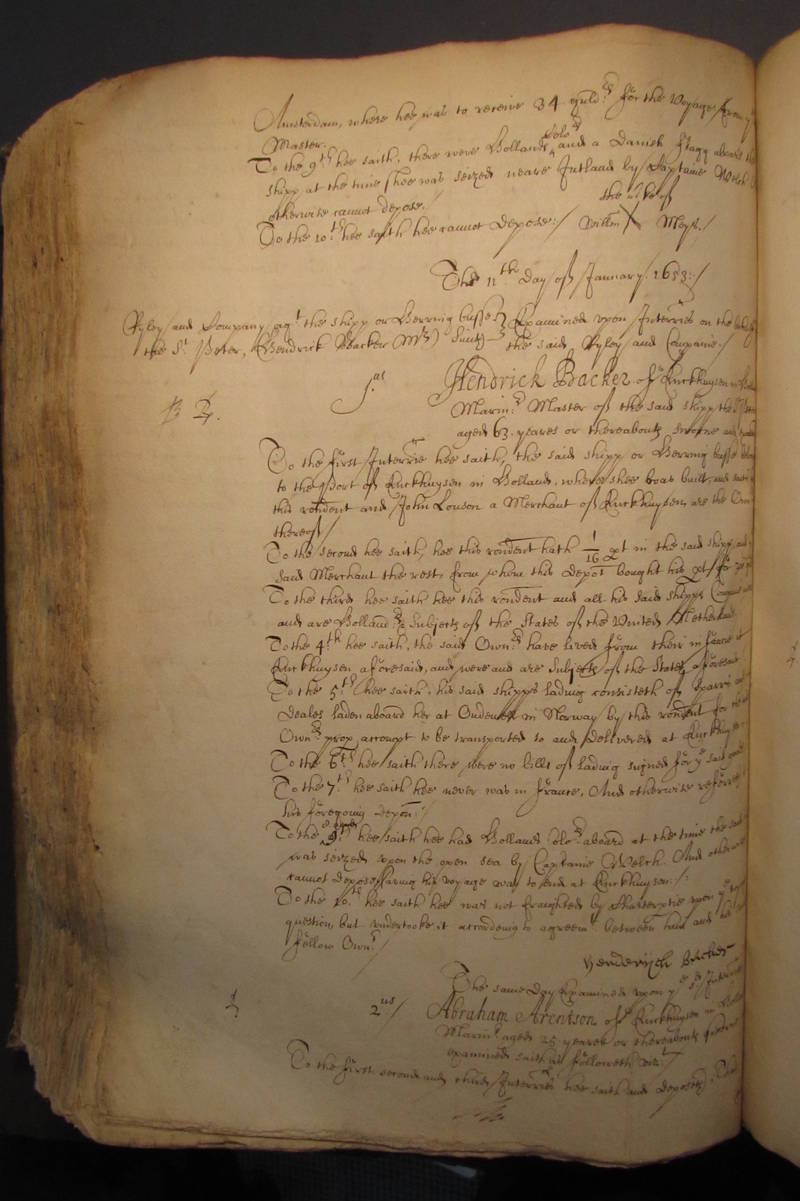 Amsterdam, where hee was to receive 34 guld.rs for the Voyage from y.e
Master.
To the 9th hee saith, there were Hollands Colo.rs and a Danish flagg aboard the
shipp at the time shee was seized neare Jutland by Captaine Welch
otherwise cannot depose./ the marke of
To the 10.th hee saith hee cannot depose:/ Willm X Meys./
The 11.th Day of January. 1653:/
Ryley and Company ag.t the shipp or Herring busse } Examined upon Interr.ies on the behalfe of
the S.t Peter, (Hendrick Backer M.r) Suint} the said Ryley and Companie./
j.us Hendrick Backer of Enckhuysen in
R 2. Marin.r Master of the said shipp the
aged 63. yeares or thereabouts sworne and
To the first Interr.ie hee saith, the said shipp or Herring busse
to the Port of Enckhuysen in Holland, where shee was built, and saith
this rondent and John Louson a Merchant of Enckhuysen, are the Own.rs
thereof/
To the second hee saith, hee this rondent hath 1/16 pt in the said shipp, and
said Merchant the rest, from whom this Depot bought his pt
To the third hee saith hee this rondent and all his said shipps Company
and are Holland.rs Subjects of the States of the United Netherlands
To the 4.th hee saith, the said Own.rs have lived from their infancie at
Enckhuysen aforesaid, and were and are Subjects of the States aforesaid
To the 5.th hee saith, his said shipps lading consisteth of Sparrs and
Deales laden aboard her at in Norway by this rondent for the
Own.rs prop. accompt to be transported to and delivered at Enckhuysen
To the 6.th hee saith there were no bills of lading signed for y.e said goods
To the 7.th hee saith hee never was in france, And otherwise referreth
his foregoing depon:/
To the 9.th hee saith hee had Hollands Colo.rs aboard at the time the said
was seized upon the open sea by Captaine Welch. And otherwise
cannot depose, saving his voyage was to end at Enckhuysen:/
To the 10.th hee saith hee was not fraughted by Charterptie upon y.e
question, but undertooke it according to agreem.t betweene him and his
fellow Own.rs/
Henderijck Backer
The same day Examined upon y.e s.d Interr.ies
2.us/ Abraham Arentson of Enckhuysen in
Marin.r aged 25 yeares or thereabouts sworne
examined saith as followeth viz.t
To the first second and third Interr.ies hee saith and deposeth,